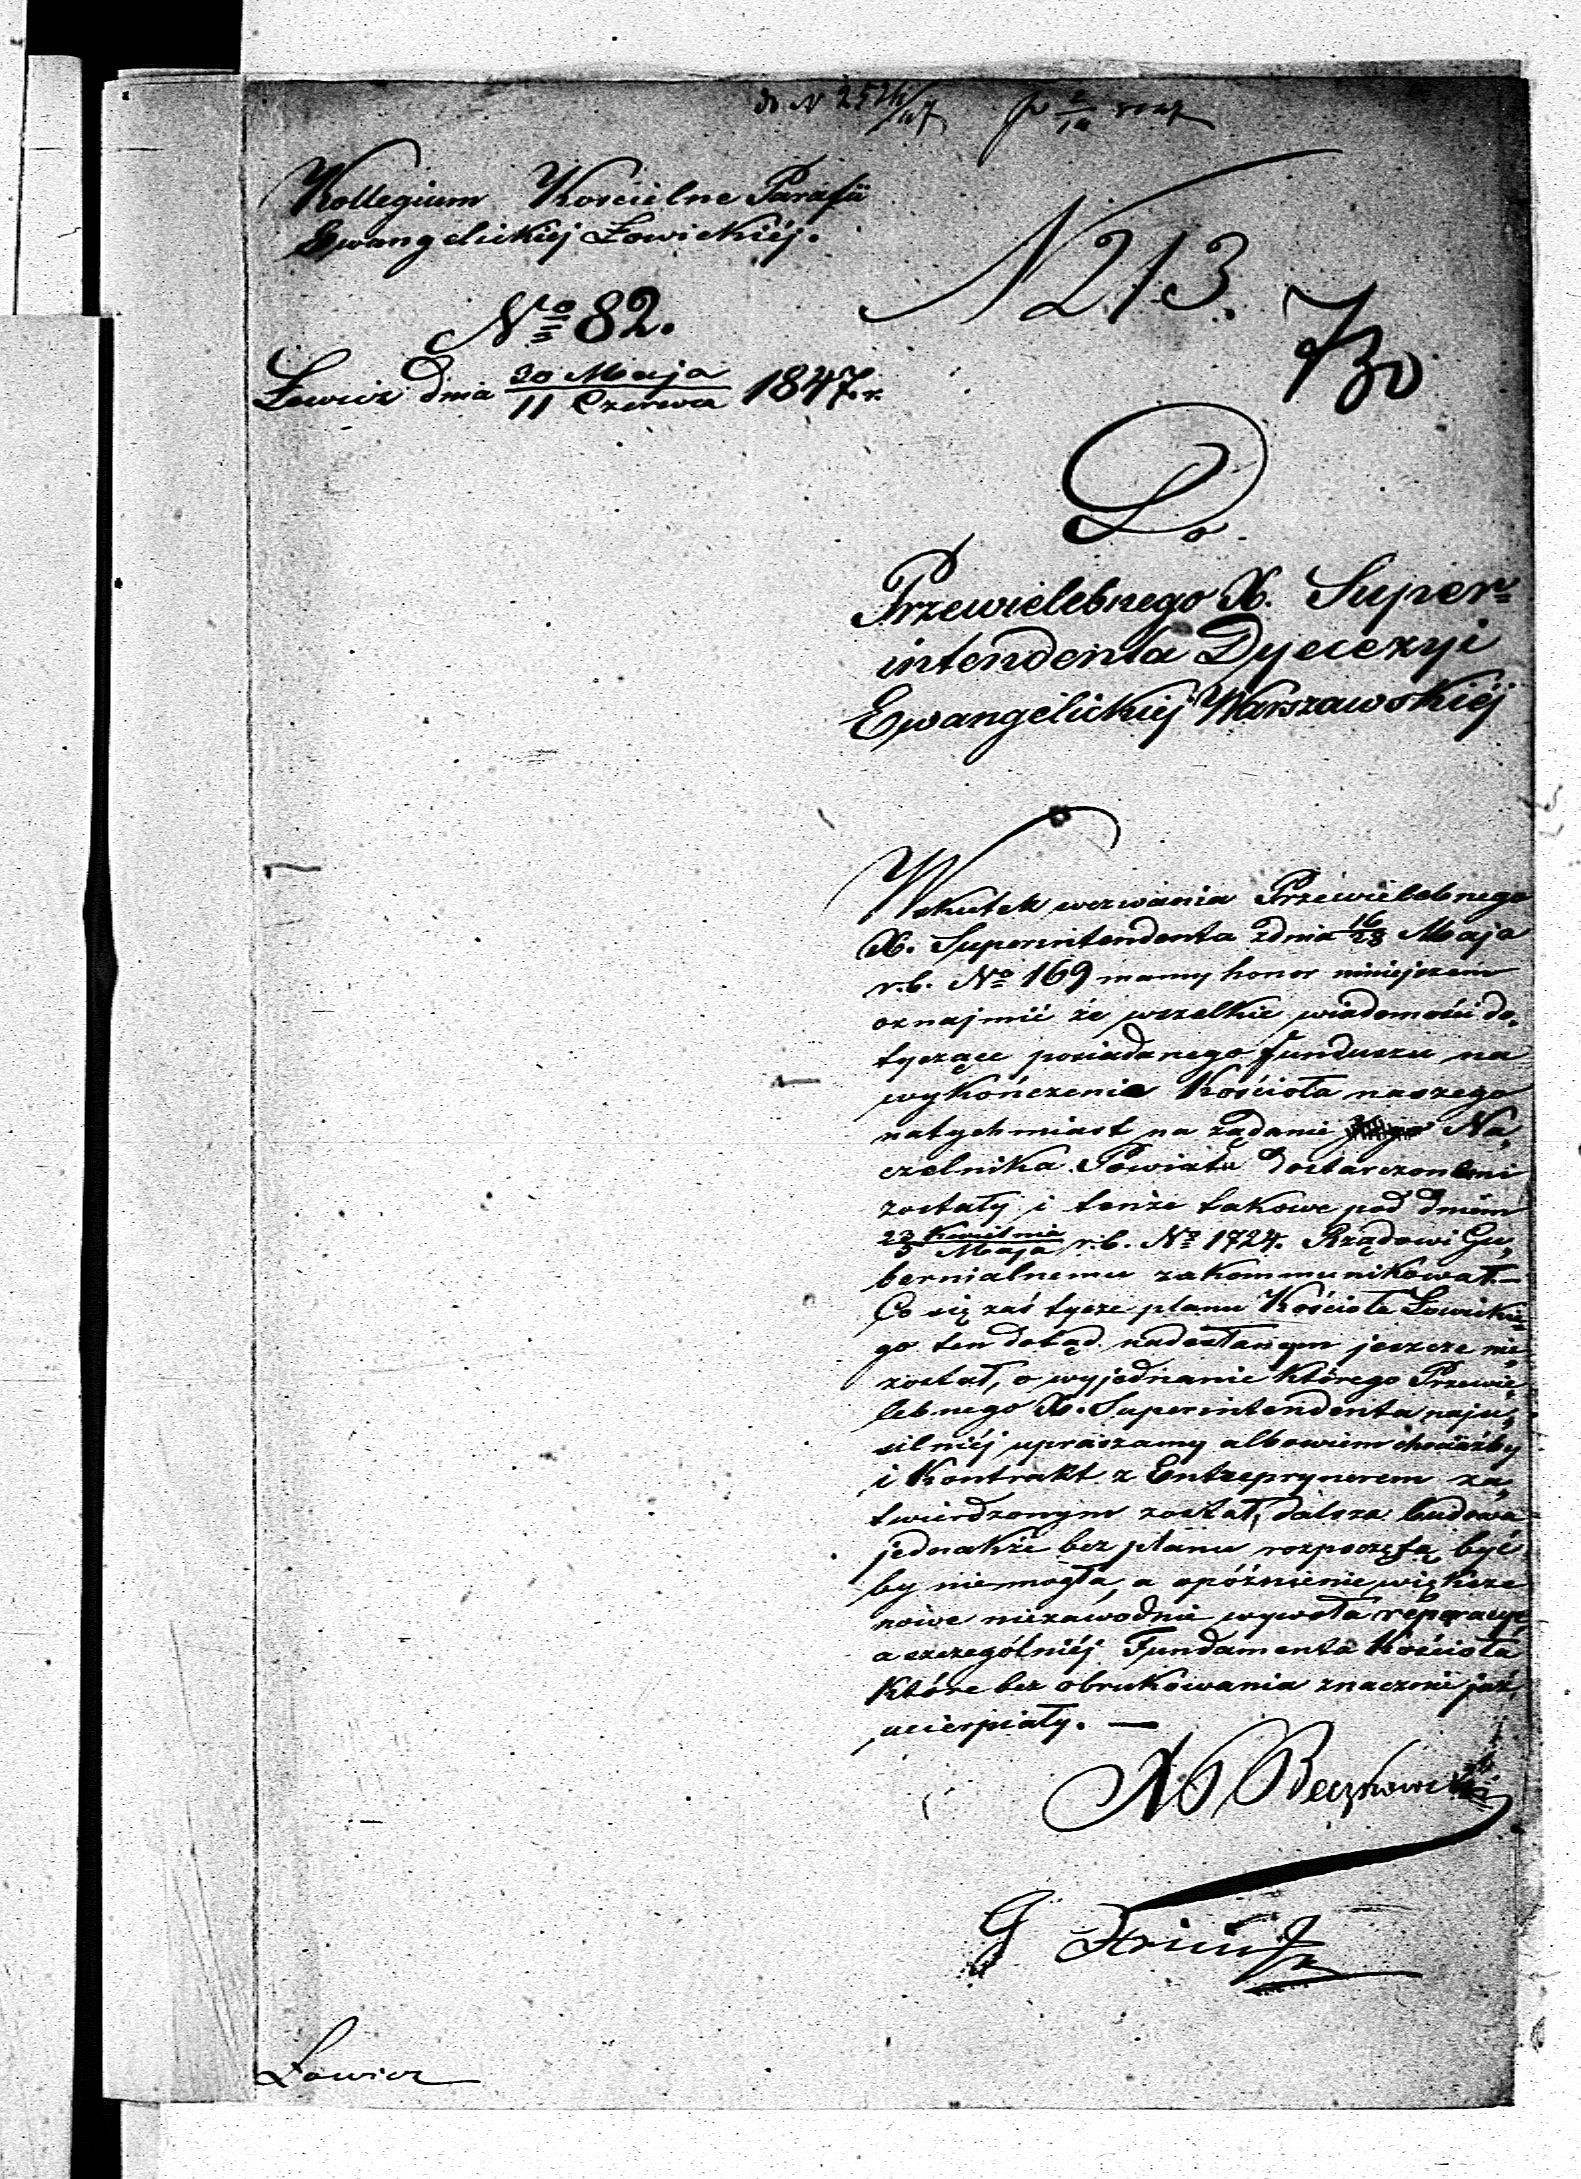 Kollegium Kościelne Parafii
Ewangelickiej Łowickiéj.
Nro 82.
Łowicz dnia 30 Maja / 11 Czerwca 1847. r.
N 213.
Do
Przewielebnego X. Super=
intendenta Dyecezyi
Ewangelickiej Warszawskiéj
Wskutek wezwania Przewielebnego
X. Superintendenta z dnia 16/28 Maja
r.b. No 169 mamy honor niniejszém
oznajmić że wszelkie wiadomości do,
tyczące posiadanego funduszu na
wykończenie Kościoła naszego
natychmiast na żądanie Na,
czelnika Powiatu dostarczonemi
zostały i tenże takowe pod dniem
23 Kwietnia / 5 Maja r.b. No 1724. Rządowi Gu,
bernialnemu zakommunikował.—
Co się zaś tycze planu Kościoła Łowickie=
go ten dotąd nadesłanym jeszcze nie
został, o wyjednanie którego Przewie,
lebnego X. Superintendenta naju,
silniéj upraszamy albowiem chociażby
i Kontrakt z Entreprynerem za,
twierdzonym został, dalsza budowa
jednakże bez planu rozpoczętą być
by niemogła, a opóźnienie większe
nowe niezawodnie wywoła reperacye
a szczególniéj Fundamenta Kościoła
które bez obrukowania znacznie już
ucierpiały. —
Łowicz